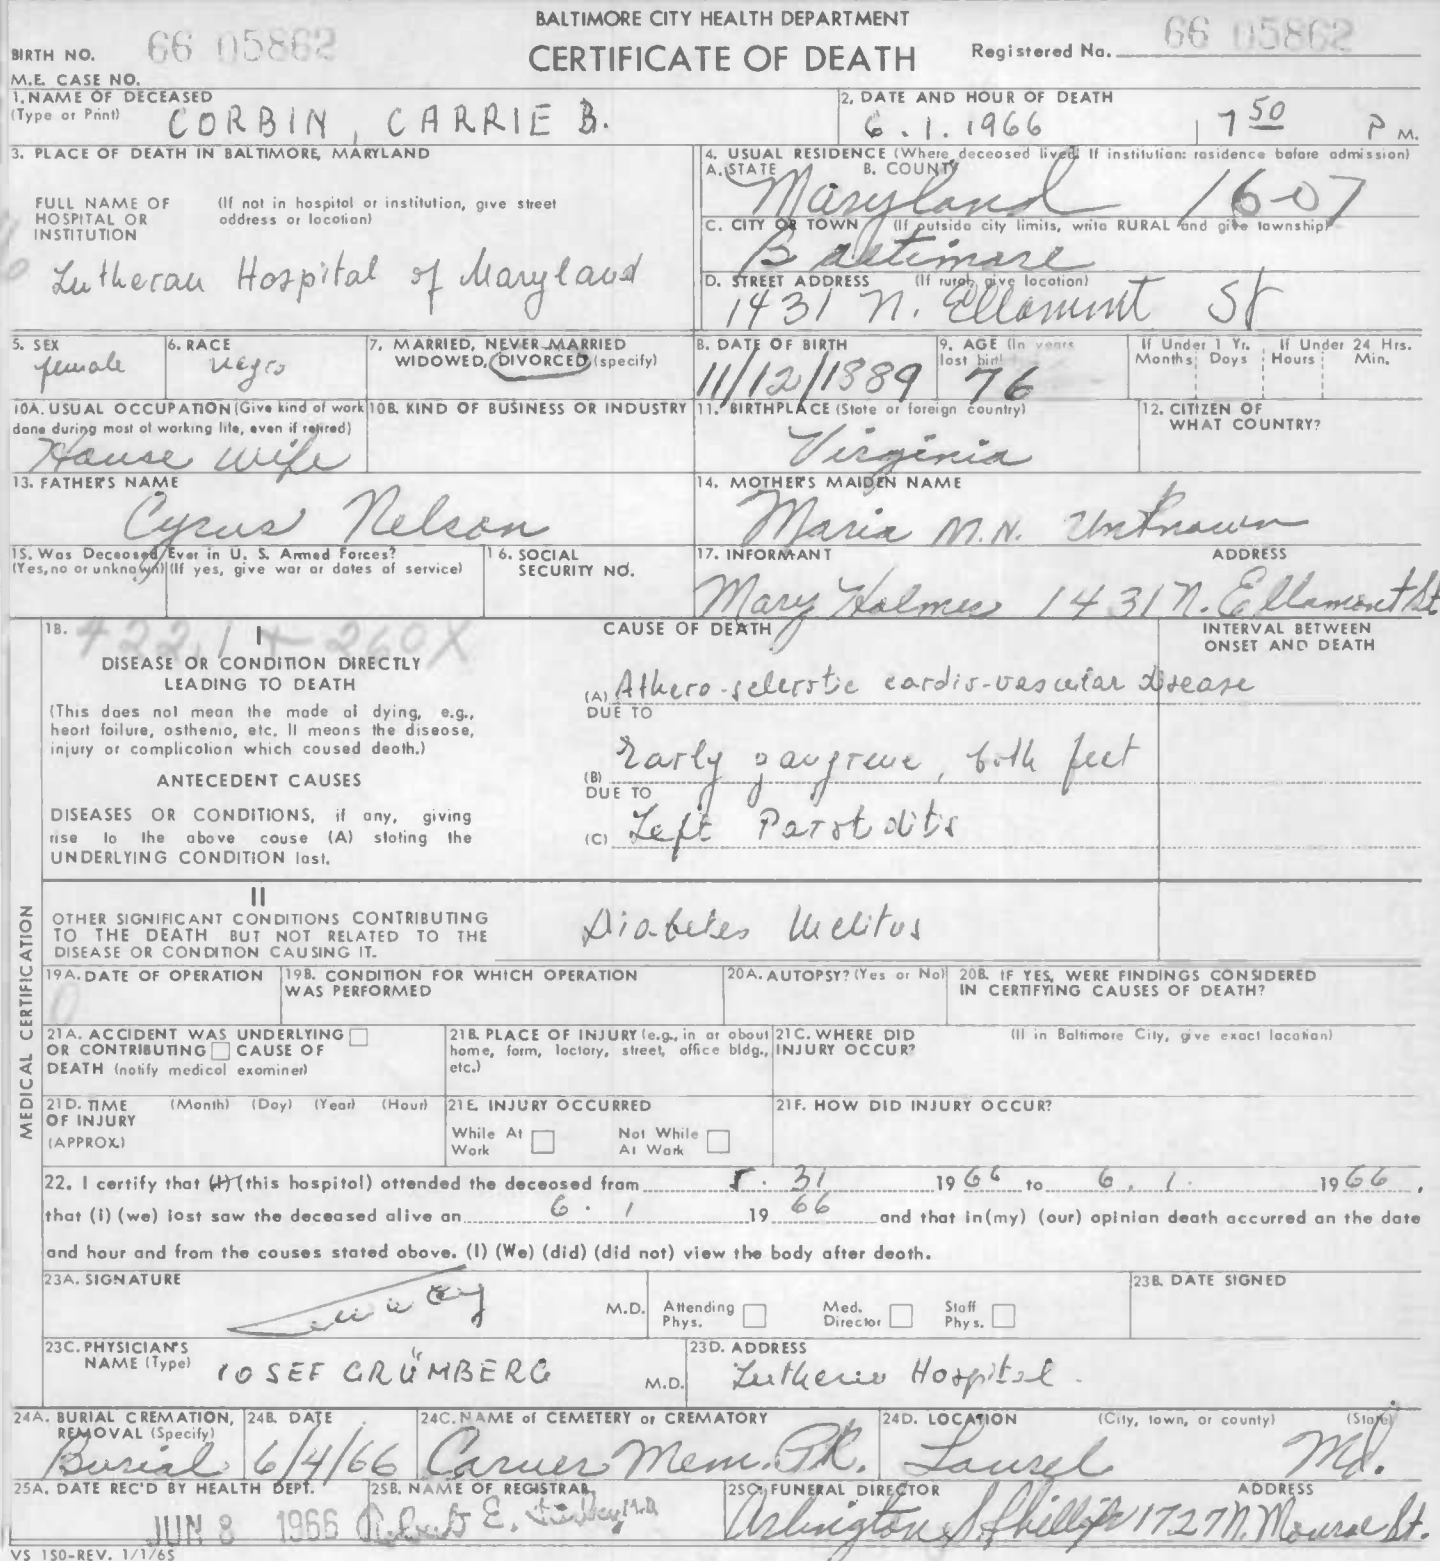 BALTIMORE CITY HEALTH DEPARTMENT
CERTIFICATE OF DEATH
BIRTH NO. 66 05862
Registered No. 66 05862
M.E. CASE NO.
1. NAME OF DECEASED
(Type or Print) CORBIN, CARRIE B.
2. DATE AND HOUR OF DEATH
6.1.1966 7 50 P M.
3. PLACE OF DEATH IN BALTIMORE, MARYLAND
FULL NAME OF HOSPITAL OR INSTITUTION
(If not in hospital or institution, give street address or location)
Lutheran Hospital of Maryland
4. USUAL RESIDENCE (Where deceased lived. If institution: residence before admission)
A. STATE B. COUNTY
Maryland 16-07
C. CITY OR TOWN (If outside city limits, write RURAL and give township)
Baltimore
D. STREET ADDRESS (If rural, give location)
1431 N. Ellamont St
5. SEX
female
6. RACE
negro
7. MARRIED, NEVER MARRIED
WIDOWED, DIVORCED (specify)
8. DATE OF BIRTH
11/12/1889
9. AGE (In years
last birth
76
If Under 1 Yr.
Months Days
If Under 24 Hrs.
Hours Min.
10A. USUAL OCCUPATION (Give kind of work
done during most of working life, even if retired)
House wife
10B. KIND OF BUSINESS OR INDUSTRY
11. BIRTHPLACE (State or foreign country)
Virginia
12. CITIZEN OF
WHAT COUNTRY?
13. FATHER'S NAME
Cyrus Nelson
14. MOTHER'S MAIDEN NAME
Maria M.N. Unknown
15. Was Deceased Ever in U. S. Armed Forces?
(Yes, no or unknown) (If yes, give war or dates of service)
16. SOCIAL
SECURITY NO.
17. INFORMANT ADDRESS
Mary Holmes 1431 N. Ellamont St
18. 422.1 + 260X
I
DISEASE OR CONDITION DIRECTLY
LEADING TO DEATH
(This does not mean the mode of dying, e.g.,
heart failure, osthenio, etc. It means the disease,
injury or complication which caused death.)
ANTECEDENT CAUSES
DISEASES OR CONDITIONS, if any, giving
rise to the above cause (A) stating the
UNDERLYING CONDITION last.
CAUSE OF DEATH
INTERVAL BETWEEN
ONSET AND DEATH
(A) Athero-sclerotic cardio-vascular disease
DUE TO
(B) Early gangrene, both feet
DUE TO
(C) Left Parotditis
MEDICAL CERTIFICATION
II
OTHER SIGNIFICANT CONDITIONS CONTRIBUTING
TO THE DEATH BUT NOT RELATED TO THE
DISEASE OR CONDITION CAUSING IT.
Diabetes Melitus
19A. DATE OF OPERATION
0
19B. CONDITION FOR WHICH OPERATION
WAS PERFORMED
20A. AUTOPSY? (Yes or No)
20B. IF YES, WERE FINDINGS CONSIDERED
IN CERTIFYING CAUSES OF DEATH?
21A. ACCIDENT WAS UNDERLYING
OR CONTRIBUTING CAUSE OF
DEATH (notify medical examiner)
21B. PLACE OF INJURY (e.g., in or about
home, farm, factory, street, office bldg.,
etc.)
21C. WHERE DID (If in Baltimore City, give exact location)
INJURY OCCUR?
21D. TIME (Month) (Day) (Year) (Hour)
OF INJURY
(APPROX.)
21E. INJURY OCCURRED
While At
Work
Not While
At Work
21F. HOW DID INJURY OCCUR?
22. I certify that (I) (this hospital) attended the deceased from 5. 31 1966 to 6. 1. 1966,
that (i) (we) last saw the deceased alive on 6. 1 1966 and that in (my) (our) opinion death accurred on the date
and hour and from the causes stated above. (I) (We) (did) (did not) view the body after death.
23A. SIGNATURE
M.D.
Attending
Phys.
Med.
Director
Staff
Phys.
23B. DATE SIGNED
23C. PHYSICIAN'S
NAME (Type) IOSEF GRÜMBERG M.D.
23D. ADDRESS
Hospital.
24A. BURIAL CREMATION,
REMOVAL (Specify)
Burial
24B. DATE
6/4/66
24C. NAME of CEMETERY or CREMATORY
Carver Mem. Pk.
24D. LOCATION (City, town, or county) (State)
Laurel Md.
25A. DATE REC'D BY HEALTH DEPT.
JUN 8 1966
25B. NAME OF REGISTRAR
Robert E. M.D
25C. FUNERAL DIRECTOR ADDRESS
Arlington S. Phillips 1727 N. Monroe St.
VS 150-REV. 1/1/65